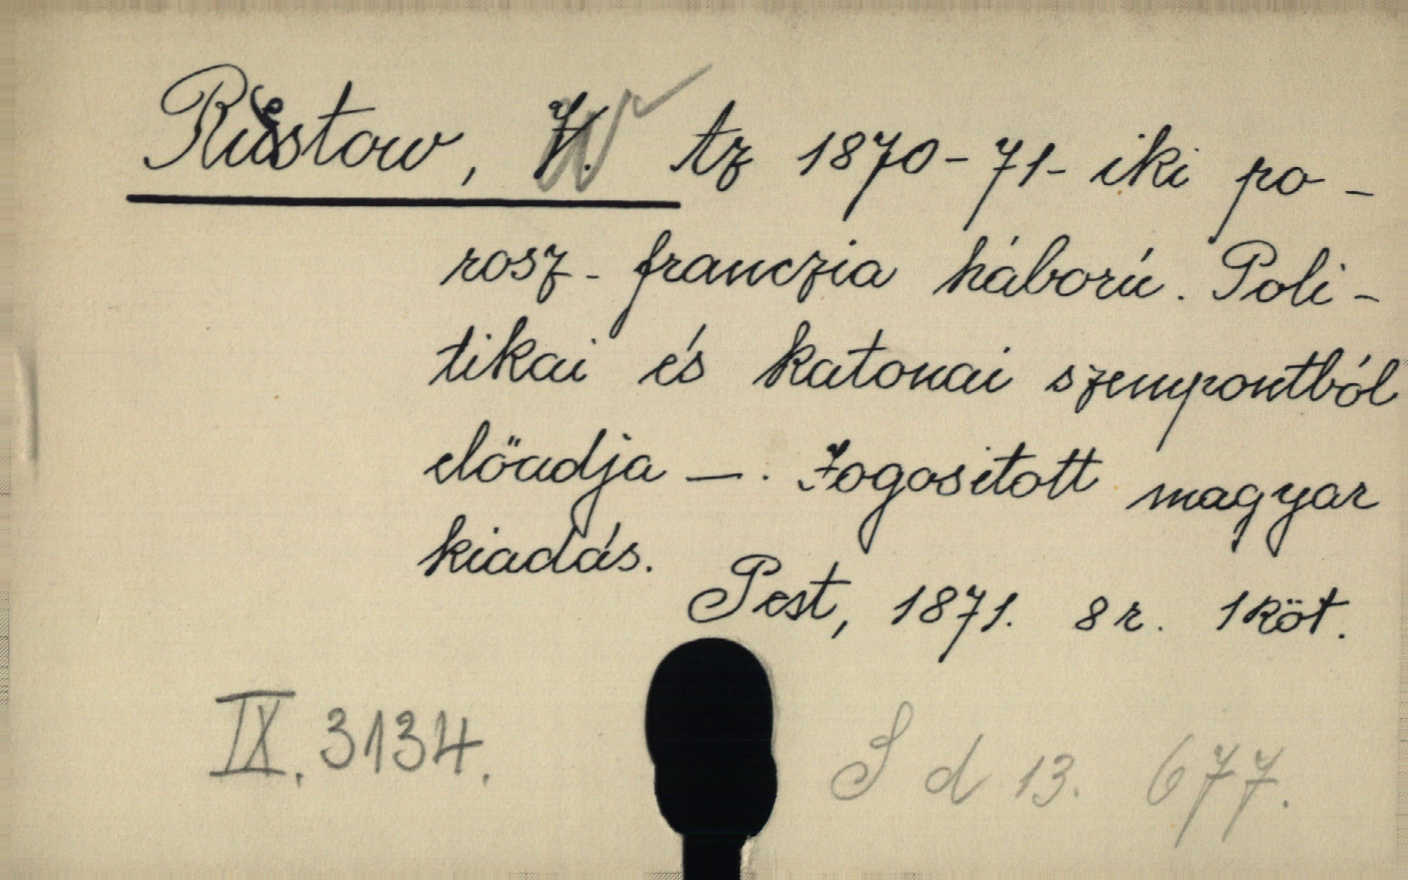 Rüstow, W. Az 1870-71-iki po-
rosz-franczia háború. Poli-
tikai és katonai szempontból
előadja —. Jogositott magyar
kiadás.
Pest, 1871. 8r. 1 köt.
IX. 3134.
S d 13. 677.